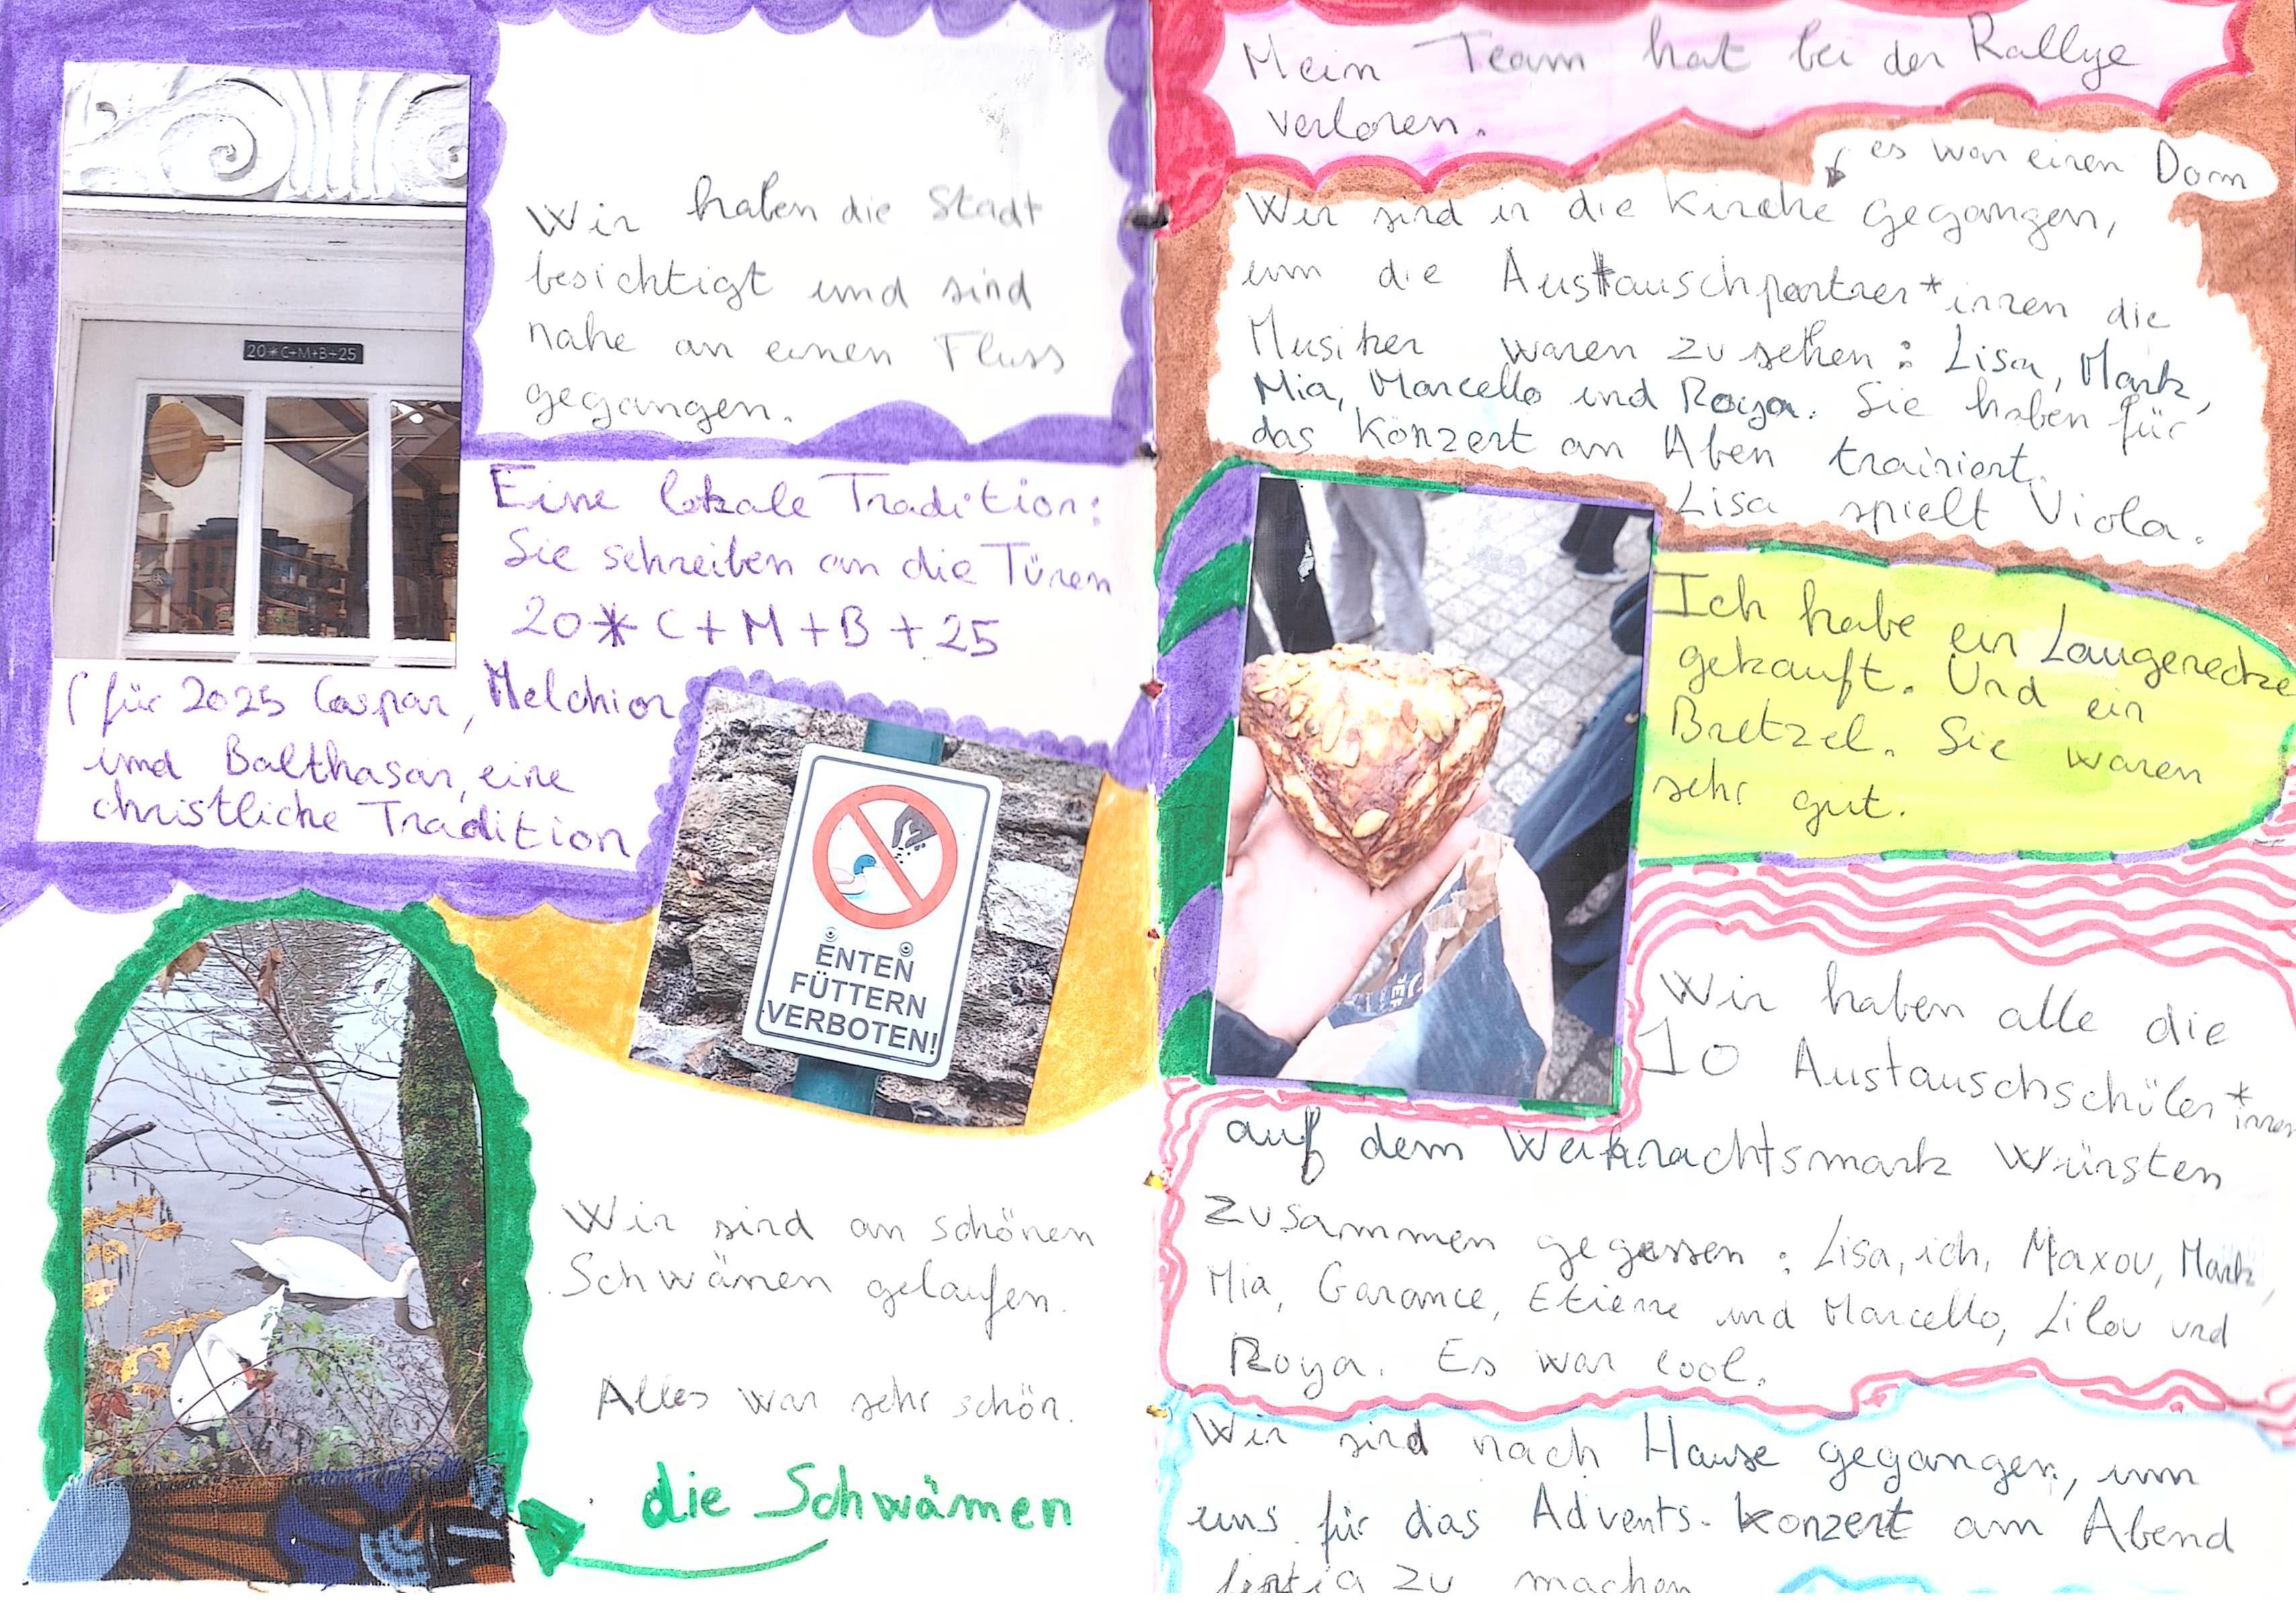 20*C+M+B+25
Wir haben die Stadt
besichtigt und sind
nahe an einen Fluss
gegangen.
Eine lokale Tradition:
Sie schreiben an die Türen
20*C+M+B+25
(für 2025 Caspar, Melchior
und Balthasar, eine
christliche Tradition
ENTEN
FÜTTERN
VERBOTEN!
Wir sind an schönen
Schwänen gelaufen.
Alles war sehr schön.
die Schwänen
Mein Team hat bei der Rallye
verloren.
es war einen Dom
Wir sind in die Kirche gegangen,
um die Austauschpartner*innen die
Musiker waren zu sehen : Lisa, Mark,
Mia, Marcello und Roya. Sie haben für
das Konzert an Aben trainiert.
Lisa spielt Viola.
Ich habe ein Laugenecke
gekauft. Und ein
Bretzel. Sie waren
sehr gut.
Wir haben alle die
10 Austauschschüler*innen
auf dem Weihnachtsmark Würsten
zusammen gegessen : Lisa, ich, Maxou, Mark,
Mia, Garance, Etienne und Marcello, Lilou und
Roya. Es war cool.
Wir sind nach Hause gegangen, um
uns für das Advents-konzert am Abend
fertig zu machen